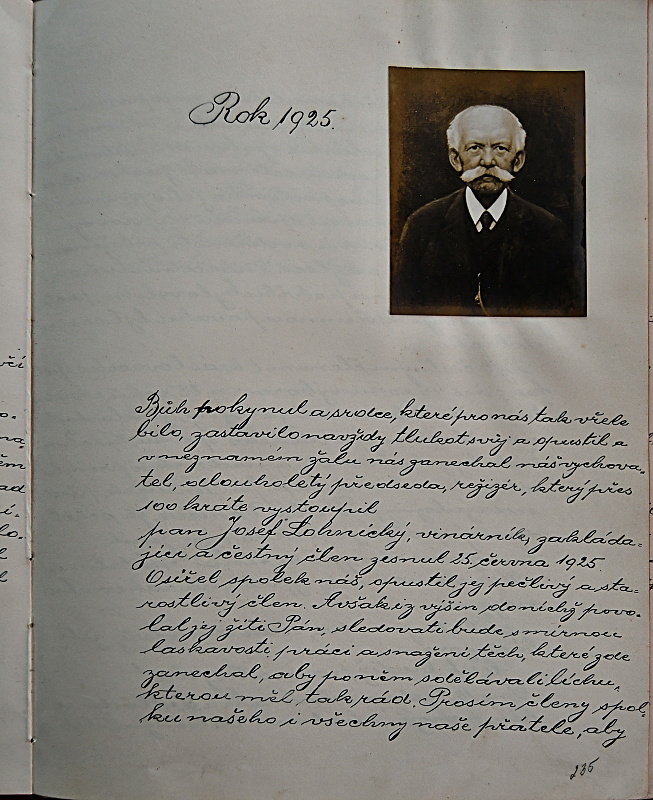 Rok 1925.
Bůh pokynul a srdce, které pro nás tak vřele
bilo, zastavilo navždy tlukot svůj a opustil a
v neznamém žalu nás zanechal náš vychova-
tel, dlouholetý předseda, režizér, který přes
100 kráte vystoupil
pan Josef Lohnický, vinárník, zakláda-
jící a čestný člen zesnul 25. června 1925.
Osiřel spolek náš, opustil jej pečlivý a sta-
rostlivý člen. Avšak i z výšin do nichž povo-
lal jej žíti Pán, sledovati bude s mírnou
laskavostí, práci a snažení těch, které zde
zanechal, aby po něm vzdělávali líchu,
kterou měl tak rád. Prosím členy spol-
ku našeho i všechny naše přátele, aby
235
čí
o-
na,
ěm
ad
í-
lo.